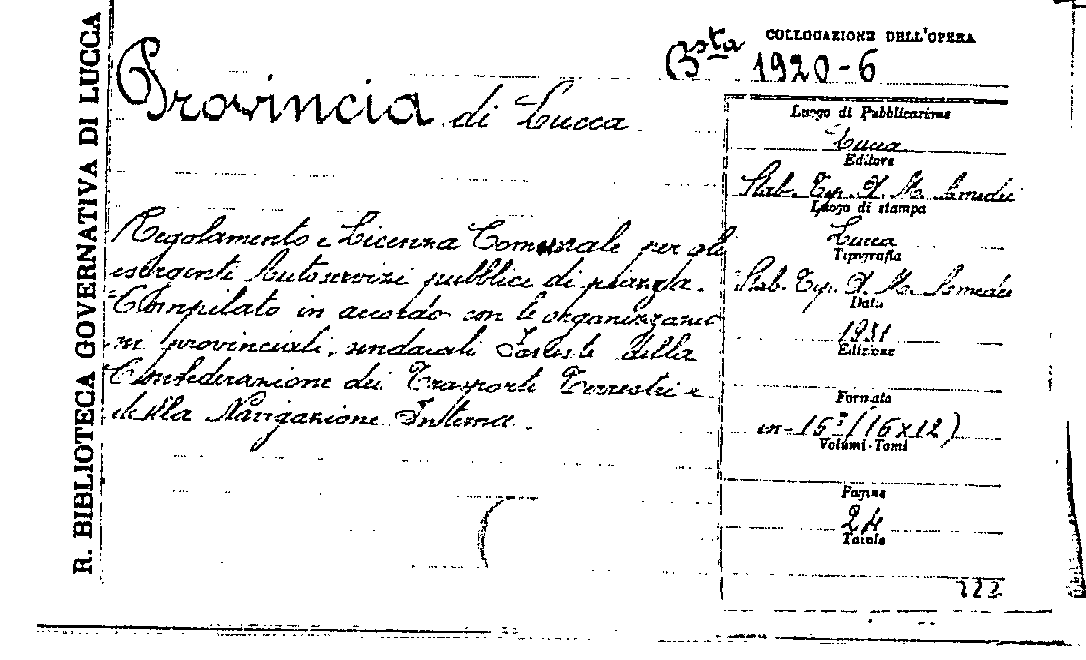 R. BIBLIOTECA GOVERNATIVA DI LUCCA
Provincia di Lucca
Regolamento e Licenza Comunale per gli
esergenti Autoservizi pubblici di piazza.
Compilato in accordo con le organizzazio
ni provinciali, sindacali della
Confederazione dei Trasporti Terrestri e
della Navigazione Interna
Bsta
COLLOCAZIONE DELL'OPERA
1920-6
Luogo di Pubblicazione
Lucca
Editore
Stab. Tip. A. M. Amedei
Luogo di stampa
Lucca
Tipografia
Stab. Tip. A. M. Amedei
Data
1931
Edizione
Formato
in-16° (16x12)
Volumi-Tomi
Pagine
24
Tavole
222